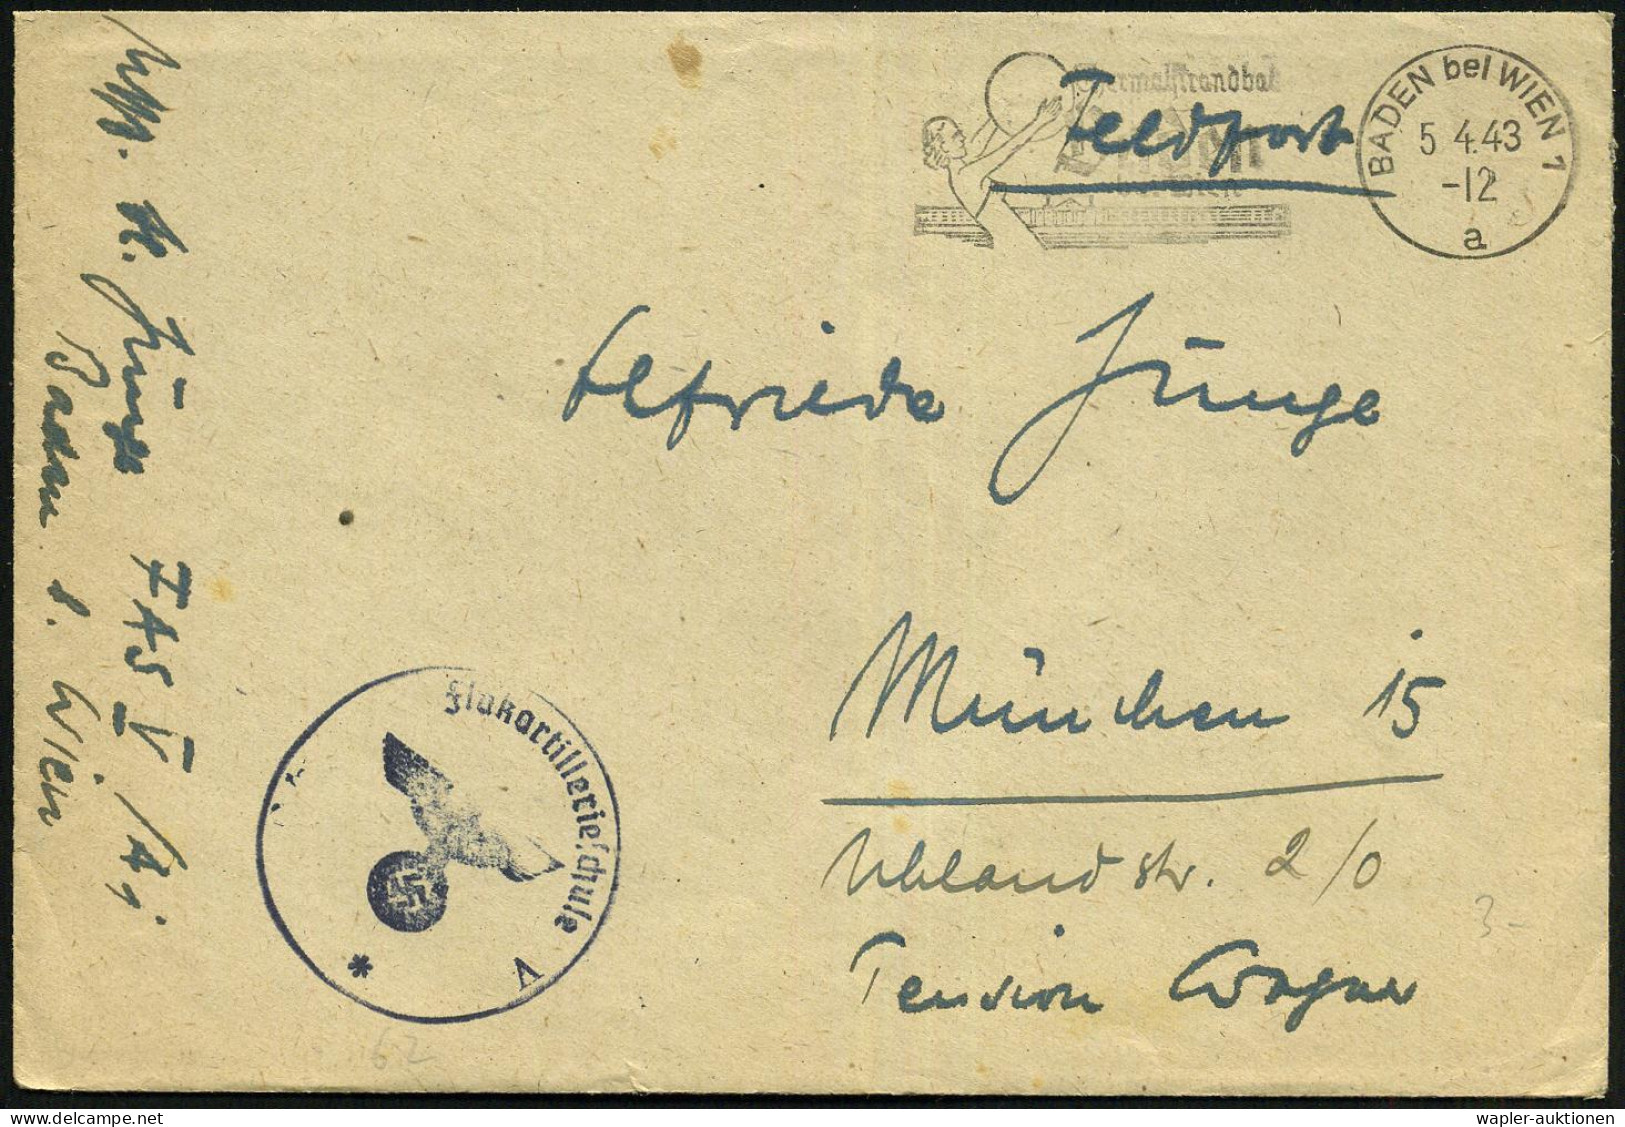 Thermalstrandbad
Baden
bei Wien
Feldpost
BADEN bei WIEN 1
5.4.43
-12
a
Elfriede Junge
München 15
Uhlandstr. 2/0
Pension Wagner
Uffz. K. Junge FAS V / A,
Baden b. Wien
Flakartillerieschule V
*
62
3-
wapler-auktionen